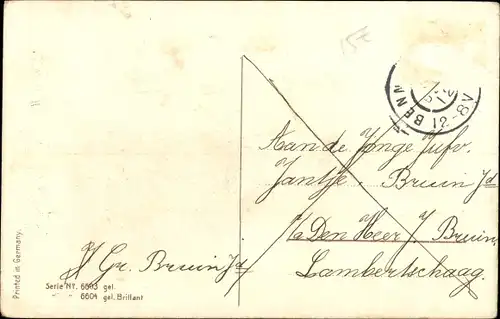 15€
BENN
12-8V
Aan de Jonge Jufr.
Jantje Bruin Jd
p/a Den Heer J. Bruin
Lambertschaag.
J Gr. Bruin Jd
Serie NY. 6603 gel.
" " 6604 gel. Brillant
Printed in Germany.